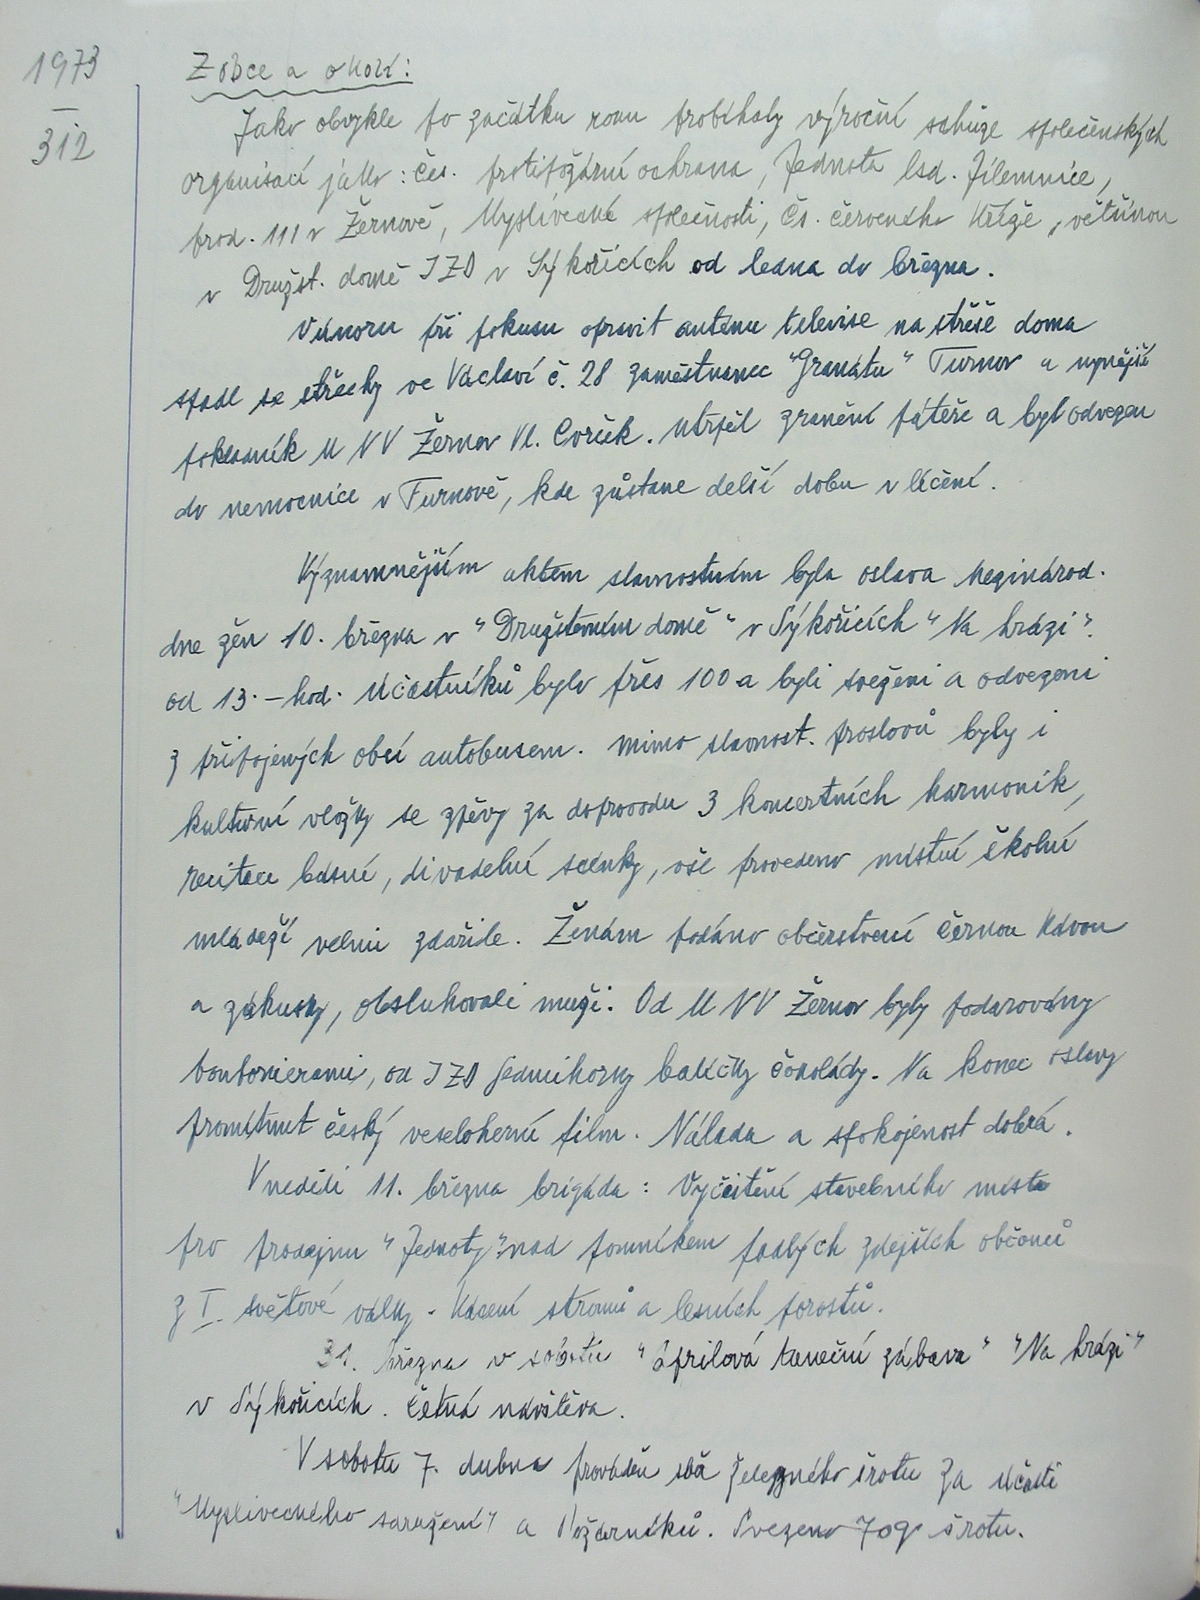 1973
—
312
Z obce a okolí:
Jako obvykle po začátku roku probíhaly výroční schůze společenských
organisací jako: čes. protipožární ochrana, Jednota lsd. Jilemnice,
prod. 111 v Žernově, Myslivecké společnosti, Čs. červeného kříže, většinou
v Družst. domě JZD v Sýkořicích od ledna do března.
V únoru při pokusu opravit antenu televise na střeše doma
spadl se střechy ve Václaví č. 28 zaměstnanec "Granátu" Turnov a nynější
pokladník M NV Žernov Vl. Cvrček. Utrpěl zranění páteře a byl odvezen
do nemocnice v Turnově, kde zůstane delší dobu v léčení.
Významnějším aktem slavnostním byla oslava Mezinárod.
dne žen 10. března v "Družstevním domě" v Sýkořicích "Na hrázi".
od 13.– hod. Účastníků bylo přes 100 a byli sveženi a odvezeni
z připojených obcí autobusem. Mimo slavnost. proslovů byly i
kulturní vložky se zpěvy za doprovodu 3 koncertních harmonik,
recitace básní, divadelní scénky, vše provedeno místní školní
mládeží velmi zdařile. Ženám podáno občerstvení černou kávou
a zákusky, obsluhovali muži. Od M NV Žernov byly podarovány
bonbonierami, od JZD Sedmihorky balíčky čokolády. Na konec oslavy
promítnut český veseloherní film. Nálada a spokojenost dobrá.
V neděli 11. března brigáda: Vyčištění stavebního místa
pro prodejnu "Jednoty" nad pomníkem padlých zdejších občanů
z I. světové války. Kácení stromů a lesních porostů.
31. března v sobotu "Aprilová taneční zábava" "Na hrázi"
v Sýkořicích. Četná návštěva.
V sobotu 7. dubna prováděn sběr železného šrotu za účasti
"Mysliveckého sdružení" a Požárníků. Svezeno 70q šrotu.